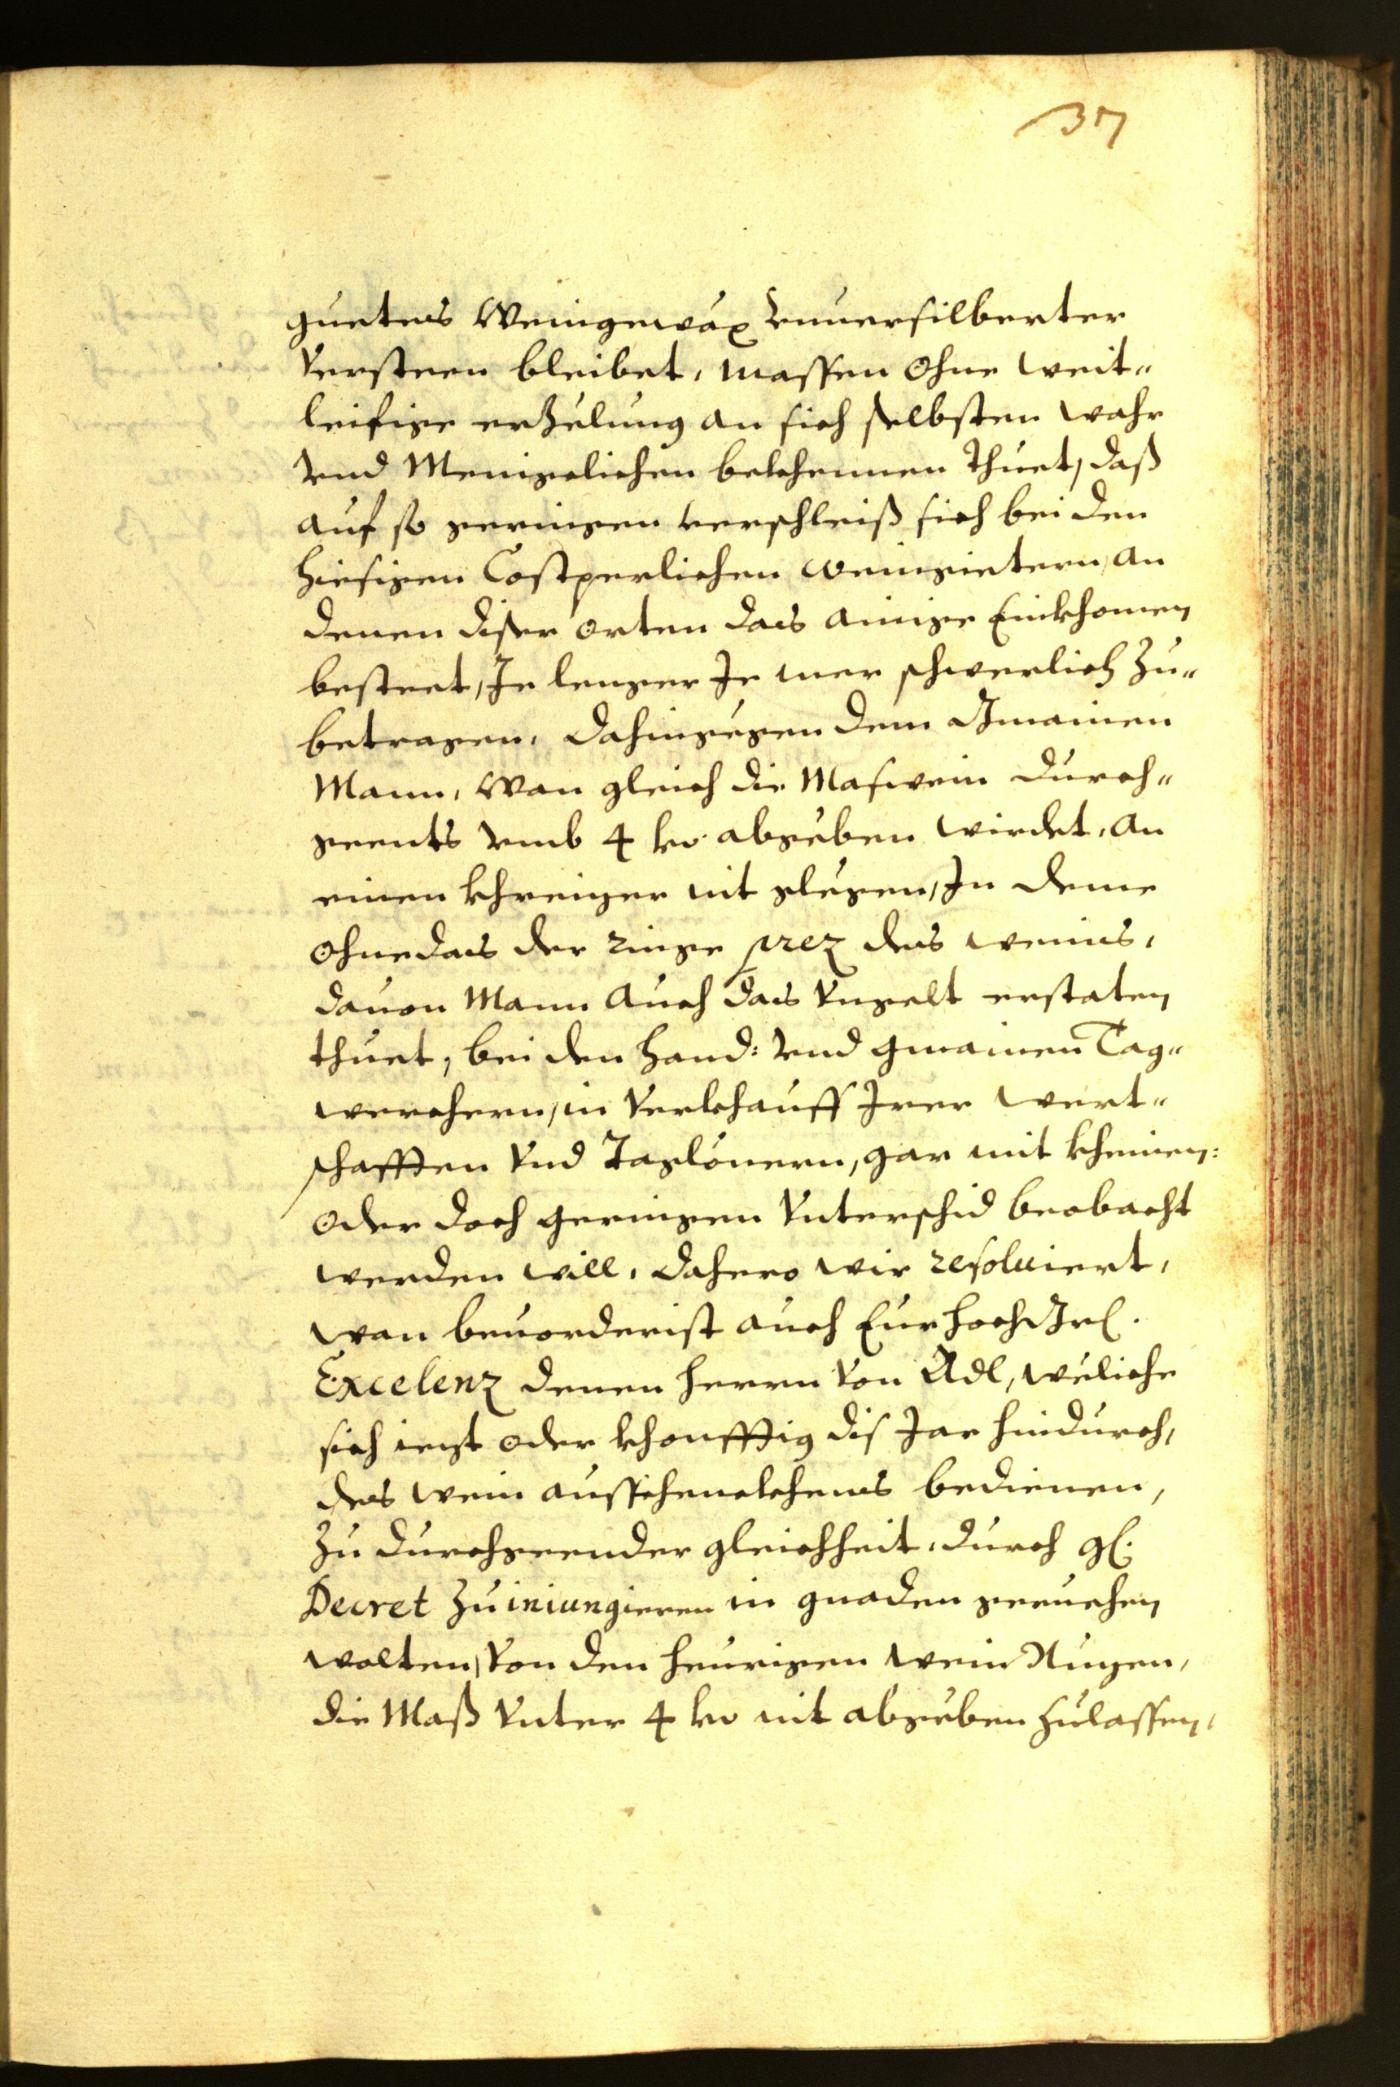 37
guetes Weingewäx Vnuersilberter
Versteen bleibet, massen ohne weit¬
leifige erzelung an sich selbsten wahr
vnd Menigelichen bekhennen thuet, daß
auf so geringen verschleiß sich bei den
hiesigen Costperlichen weingietern, an
denen diser orten das ainige Einkhomen
besteet, Je lenger Je mer schwerlich zu¬
betragen, dahingegen dem Gmainen
Mann, Wan gleich die Maswein durch¬
geents vmb 4 kr abgeben wirdet, an
einen khreizer nit glegen, In deme
ohne das der ringe prez des weins,
dauon Mann auch das Vngelt erstaten
thuet, bei den Hand: vnd gmainen Tag¬
werchern, in Verkhauff Irer wert¬
schafften vnd Taglönern, gar mit kheinen:
oder doch geringen Vnterschid beobacht
werden will, dahero wir resoluiert,
wan beuorderist auch Eur hochGrl.
Excelenz denen herrn von Adl, weliche
sich iezt oder khonfftig dis Jar hindurch,
des wein ausschenckhens bedienen,
zu durchgeender gleichheit, durch gl.
Decret zu iniungieren in gnaden geruehen
wolten, von den heurigen wein Nuzen,
die Maß vnter 4 kr nit abgeben zulassen,